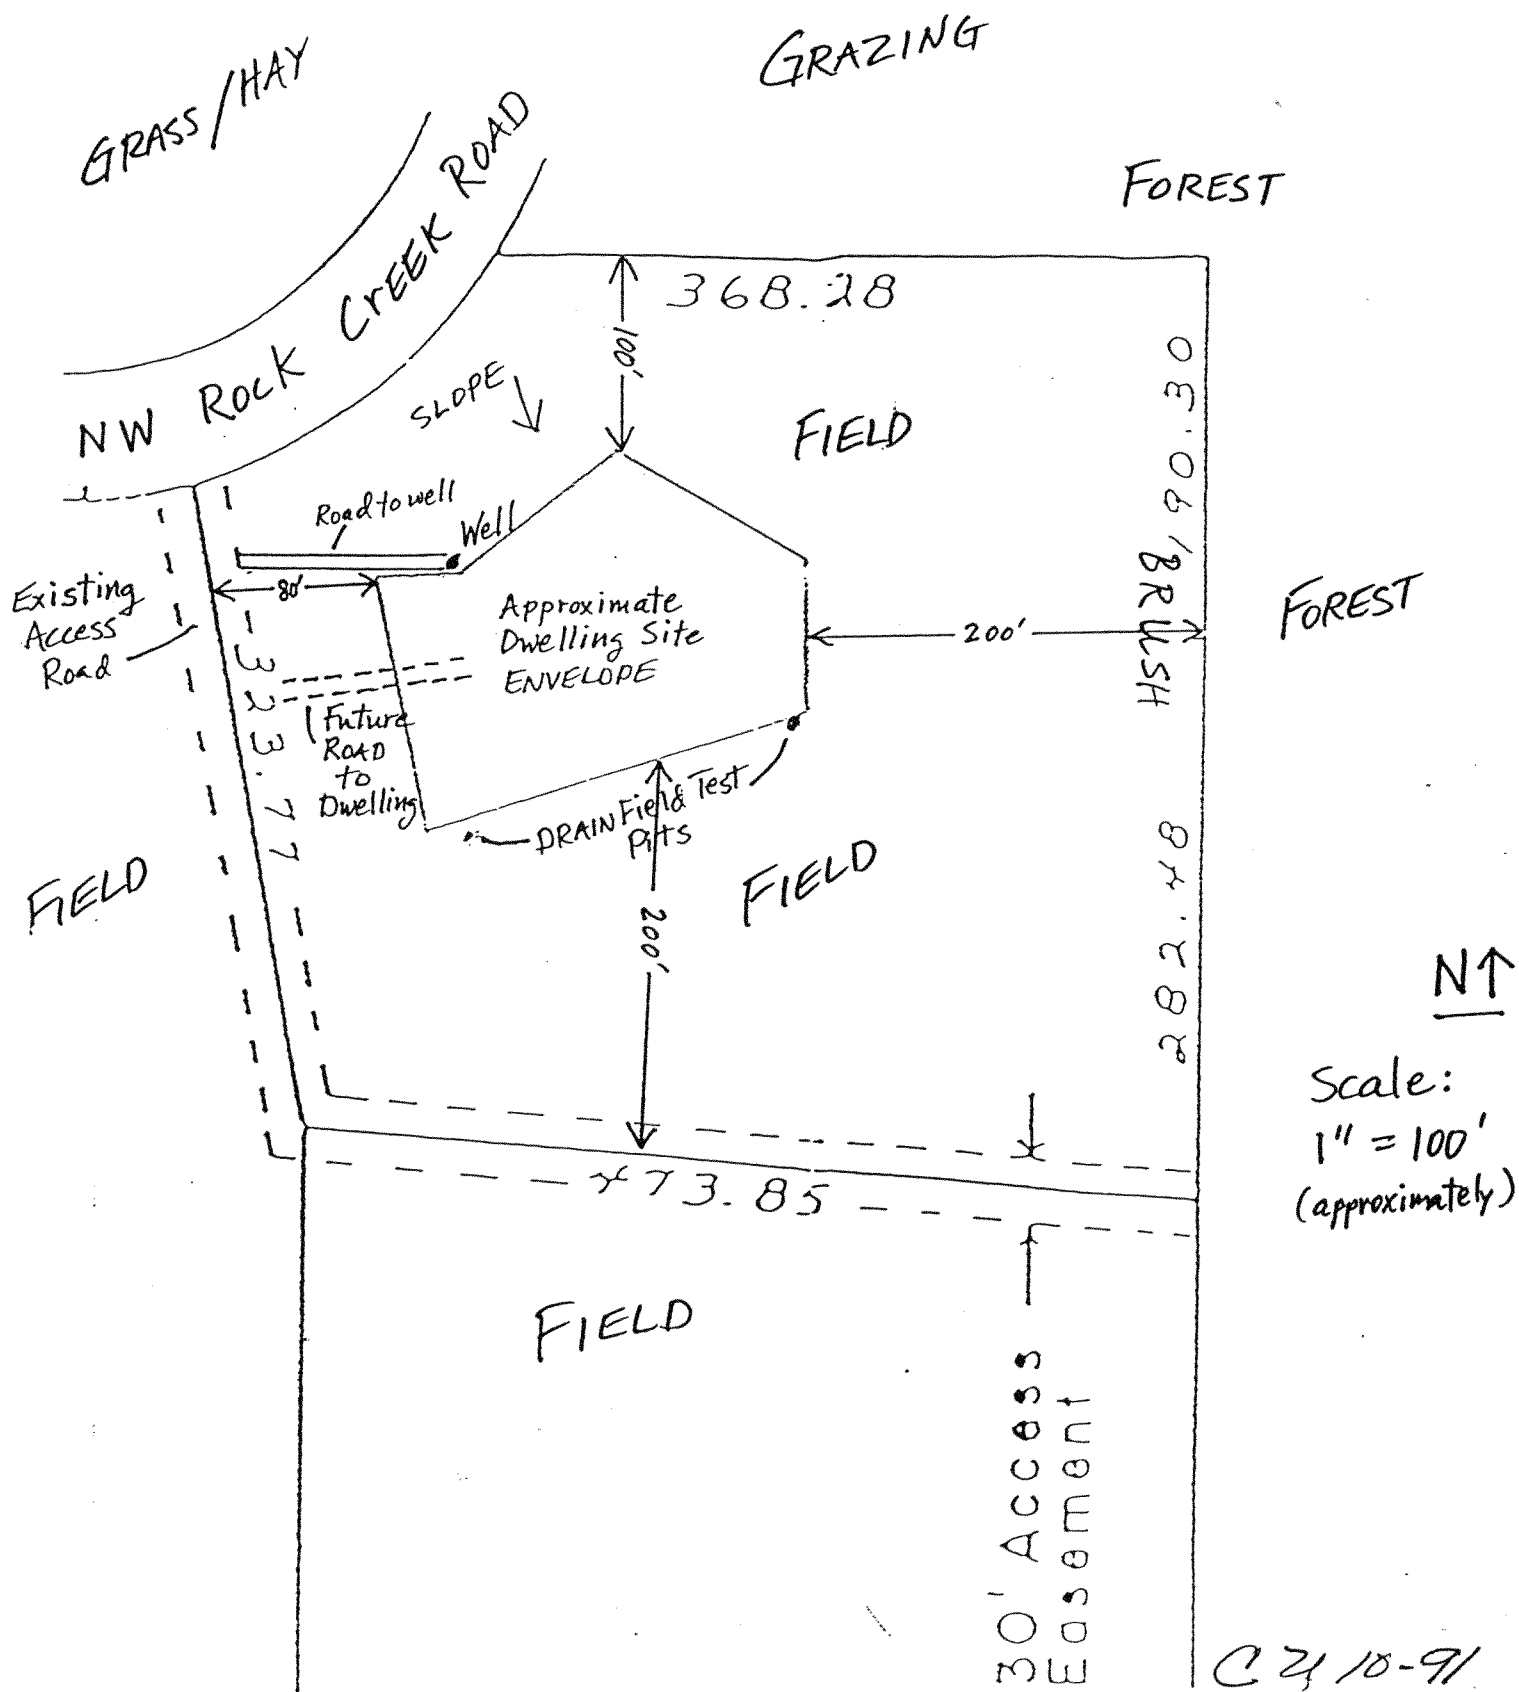 GRASS/HAY
GRAZING
FOREST
NW ROCK CREEK ROAD
368.28
100'
SLOPE
FIELD
190.30
BRUSH
Road to well
Well
Existing
Access
Road
80'
Approximate
Dwelling Site
ENVELOPE
200'
FOREST
323.77
Future
ROAD
to
Dwelling
DRAIN Field Test
Pits
FIELD
FIELD
200'
282.48
N
Scale:
1" = 100'
(approximately)
473.85
FIELD
30' Access
Easement
10-91